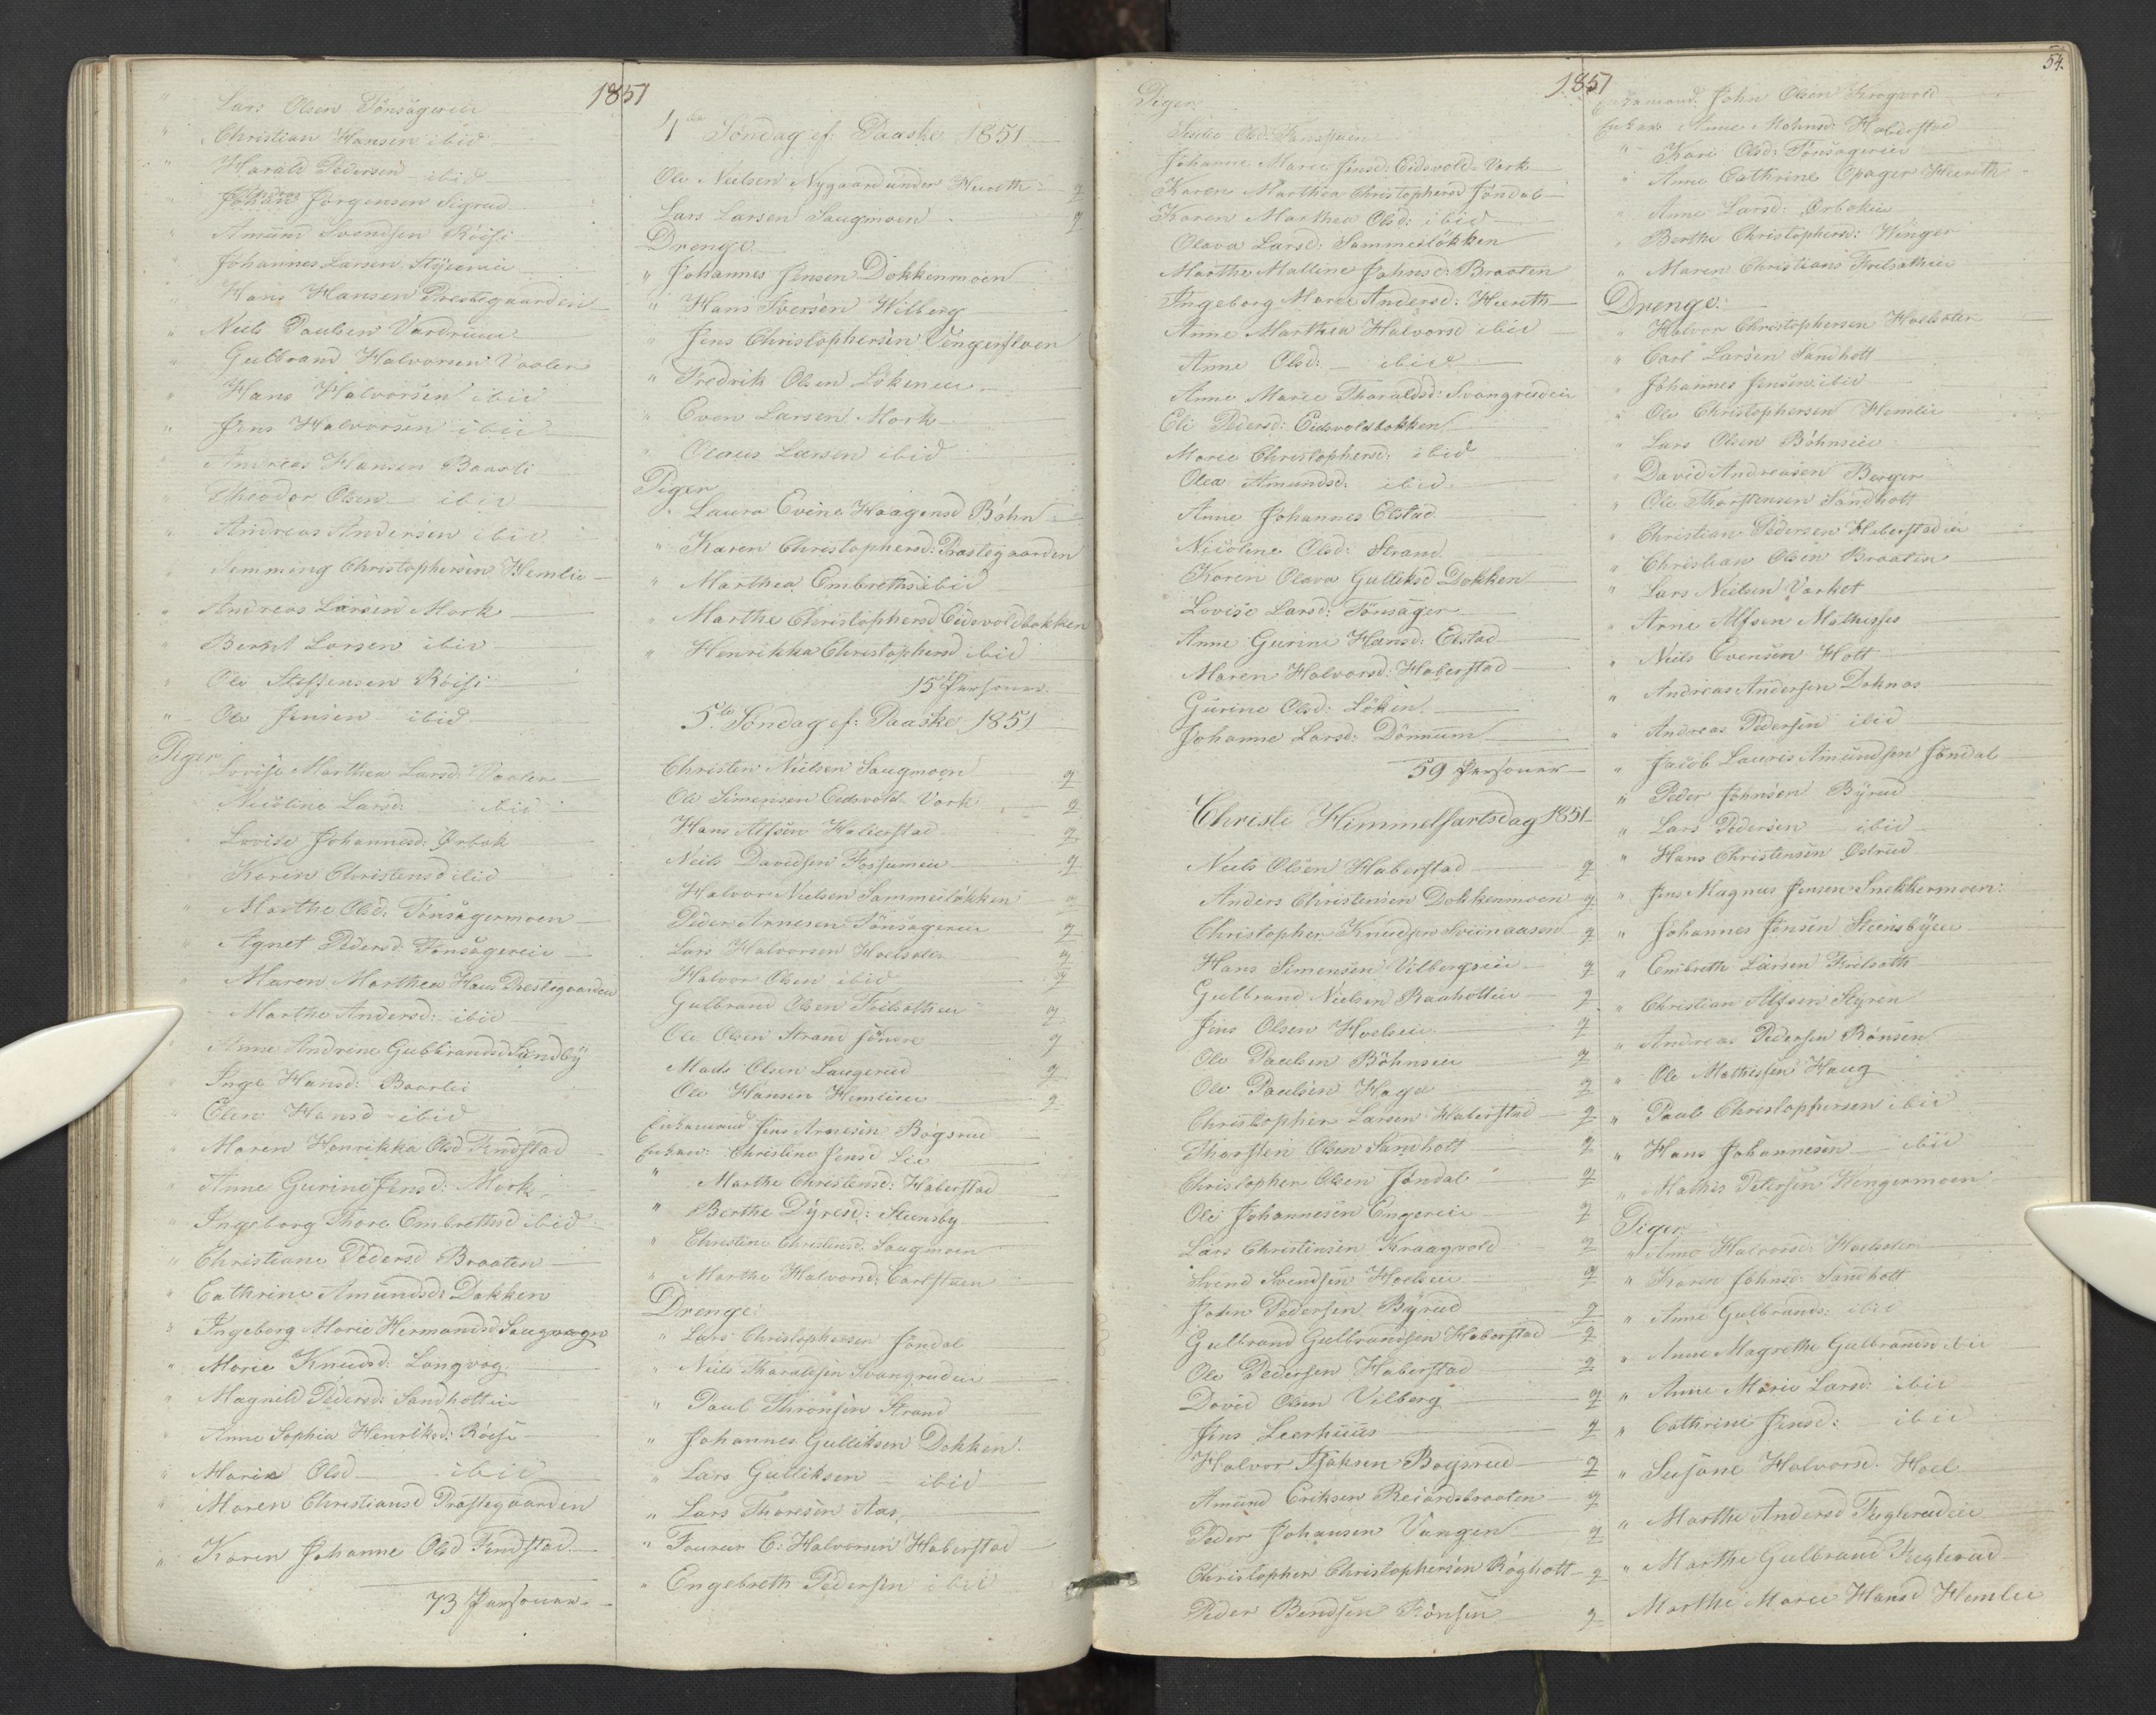 1851
" Lars Olsen Tönsägereie
" Christian Hansen ibid
" Harald Pedersen ibid
" Jörgensen Sigrud
" Amund Svendsen Röisi
" Johannes Larsen Styrerie
" Hans Hansen Prestegaardeie
" Niels Paulsen
" Gulbrand Halvorsen Vaalen
" Hans Halvorsen ibid
" Jens Halvorsen ibid
" Andreas Hansen Baarli
" Theodor Olsen ibid
" Andreas Andersen ibid
" Simming Christophersen Hemlie
" Andreas Larsen Mork
" Bernt Larsen ibid
" Ole Steffensen Röisi
" Ole Jensen ibid
Piger
Lovise Marthea Larsd: Vaalen
Nicoline Larsd: ibid
" Lovise Johannesd: Ørbak
Karen Christensd ibid
" Marthe Olsd: Tönsagermoen
" Agnet Pedersd: Tönsägereie
" Maren Marthea Hans Prestegaarden
Marthe Andersd: ibid
" Anne Andrine Gulbrandsd Sundby
" Inge Hansd: Baarlie
" Elen Hansd ibid
" Maren Henrikka Olsd Findstad
" Anne Gurine Jensd: Mork
" Ingeborg Thore Embrethsd ibid
" Christiane Pedersd Braaten
" Cathrine Amundsd: Dokken
" Ingeborg Marie Hermandsd Saugvogn
" Marie Knudsd: Langvog
" Magnild Pedersd: Sandhottie
" Anne Sophia Henriksd: Röisi
" Marie Olsd ibid
" Maren Christiansd Præstegaarden
" Karen Johanne Olsd Findstad
73 Personer
4de Söndag ef: Paaske 1851
Ole Nielsen Nygaard under Hureth g
Lars Larsen Saugmoen g
Drenge
" Johannes Jensen Dokkenmoen
" Hans Iversen Wilberg
" Jens Christophersen Vengersloen
" Fredrik Olsen Lökeneie
" Even Larsen Mork
" Olaus Larsen ibid
Piger
" Laura Evine Haagensd Böhn
" Karen Christophersd: Præstegaarden
" Marthea Embrethsd ibid
" Marthe Christophersd Eidsvoldbakken
" Henrikka Christophersd ibid
15 Personer
5te Söndag ef: Paaske 1851
Christen Nielsen Saugmoen g
Ole Simensen Eidsvold Værk g
Hans Alfsen Haberstad g
Niels Davidsen Fossumeie g
Halvor Nielsen Sammeilökken g
Peder Arnesen Tönsägereie g
Lars Halvorsen Hoelsæter g
Halvor Olsen ibid g
Gulbrand Olsen Frilsætheie g
Ole Olsen Strand söndre g
Mads Olsen Laugerud g
Ole Hansen Hemlieie g
Enkemand Jens Arnesen Bögsrud
Enker: Christine Jensd Lie
" Marthe Christensd: Haberstad
" Berthe Dyresd: Steensby
" Christine Christensd. Saugmoen
" Marthe Halvorsd: Carlstuen
Drenge:
" Lars Christophersen Jöndal
" Niels Tharaldsen Svangrudeie
" Paul Thronsen Strand
" Johannes Gulliksen Dokken
" Lars Gulliksen ibid
" Lars Thoresen Aas
" C: Halvorsen Haberstad
" Engebreth Pedersen ibid
1851
54.
Piger
Olsd:
Johanne Marie Jensd: Eidsvold-Værk
Karen Marthea Christophersd Jöndal
Karen Marthea Olsd: ibid
Olava Larsd: Sammeilökken
Marthe Malline Johnsd: Braaten
Ingeborg Marie Andersd: Hureth
Anne Marthea Halvorsd ibid
Anne Olsd: ibid
Anne Marie Tharaldsd: Svangrudeie
Eli Pedersd: Eidsvoldbakken
Marie Christophersd: ibid
Olea Amundsd: ibid
Anne Johannes Elstad
Nicoline Olsd: Strand
Karen Olava Gulliksd Dokken
Lovise Larsd: Tönsager
Anne Gurine Hansd: Elstad
Maren Halvorsd: Haberstad
Gurine Olsd: Löken
Johanne Larsd: Dönnum
59 Personer
Christi Himmelfartsdag 1851
Niels Olsen Haberstad g
Anders Christensen Dokkenmoen g
Christopher Knudsen Sviinaasen g
Hans Simensen Vilbergeie g
Gulbrand Nielsen Raaholteie g
Jens Olsen Hoeleie g
Ole Paulsen Böhnseie g
Ole Paulsen Haga g
Christopher Larsen Haberstad g
Thorsten Olsen Sandholt g
Christopher Olsen Jöndal g
Ole Johannesen Engereie g
Lars Christensen Kraagvold g
Svend Svendsen Hoeleie g
John Pedersen Byrud g
Gulbrand Gulbrandsen Haberstad g
Ole Pedersen Haberstad g
David Olsen Vilberg g
Jens Leerhuus g
Halvor Isaksen Bogsrud g
Amund Eriksen Reiardsbraaten g
Peder Johansen Vangen g
Christopher Christophersen Rögholt g
Peder Bendsen Rönsen g
Enkemand: John Olsen Kragvold
Enker: Anne Mohnsd: Haberstad
" Kari Olsd: Tönsagereie
" Anne Cathrine Opager Hureth
" Anne Larsd: Ørbakeie
" Berthe Christophersd: Winger
" Maren Christians Frilsætheie
Drenge:
" Halvor Christophersen Hoelsæter
" Carl Larsen Sandholt
" Johannes Jensen ibid
" Ole Christophersen Hemlie
" Lars Olsen Böhnseie
" David Andreasen Berger
" Ole Thorstensen Sandholt
" Christian Pedersen Haberstadeie
" Christian Olsen Braaten
" Lars Nielsen Værket
" Arne Alfsen
" Niels Evensen Holt
" Andreas Andersen Doknæs
" Andreas Pedersen ibid
" Jacob Lauris Amundsen Jöndal
" Peder Johnsen Byrud
" Lars Pedersen ibid
" Hans Christensen Østrud
" Jens Magnus Jensen Snekkermoen:
" Johannes Jensen Steensbyeie
" Embreth Larsen Frilsæth
" Christian Alfsen Styren
" Andreas Pedersen Rönsen
" Ole Mathisen Haug
" Paul Christophersen ibid
" Hans Johannesen ibid
" Mathis Petersen Wengermoen
Piger
" Anne Halvorsd: Hoelsæter
" Karen Johnsd: Sandholt
" Anne Gulbrands: ibid
" Anne Magrethe Gulbrandsd ibid
" Anne Marie Larsd: ibid
" Cathrine Jensd: ibid
" Susane Halvorsd. Hoel
" Marthe Andersd Fuglerudeie
" Marthe Gulbrand Fuglerud
Marthe Marie Hansd Hemlie